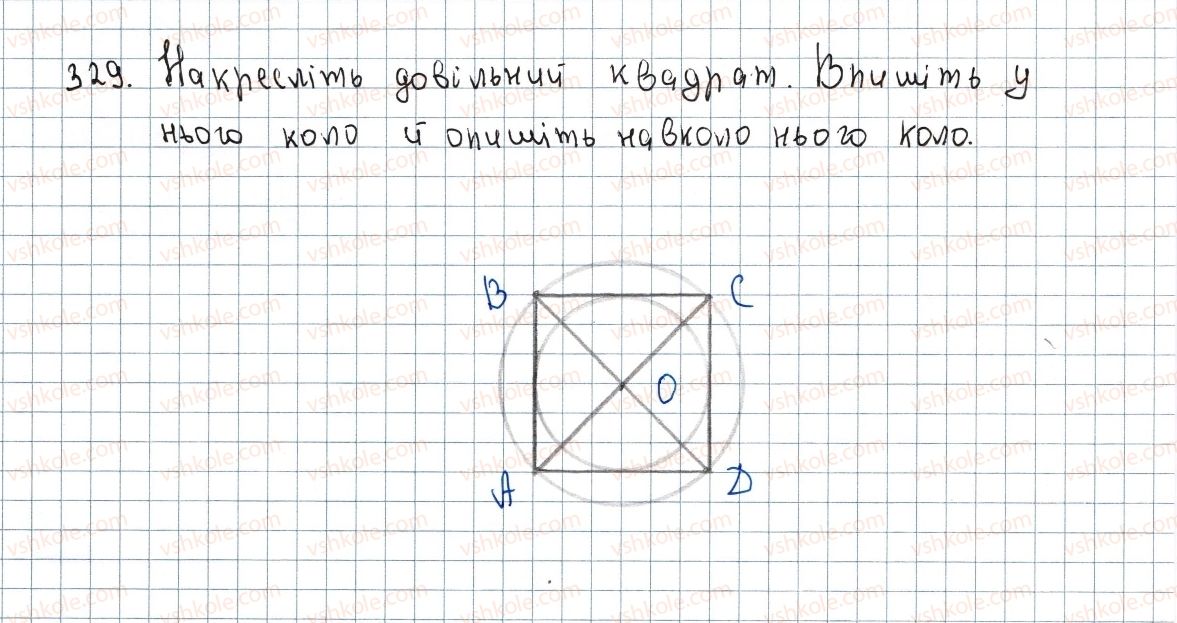 329. Накресліть довільний квадрат. Впишіть у
нього коло й опишіть навколо нього коло.
B
C
O
A
D
vshkole.com